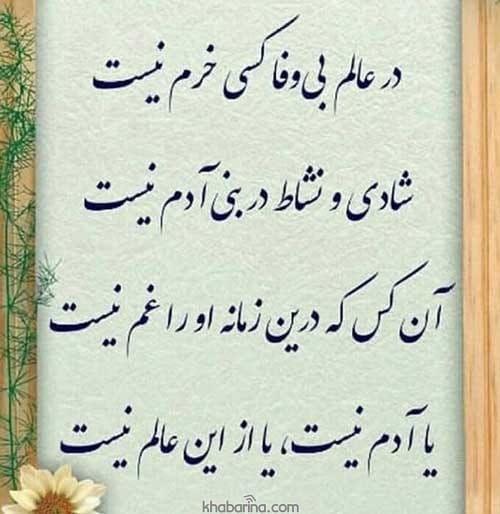 در عالم بی‌وفا کسی خرم نیست
شادی و نشاط در بنی آدم نیست
آن کس که درین زمانه او را غم نیست
یا آدم نیست، یا از این عالم نیست
khabarina.com